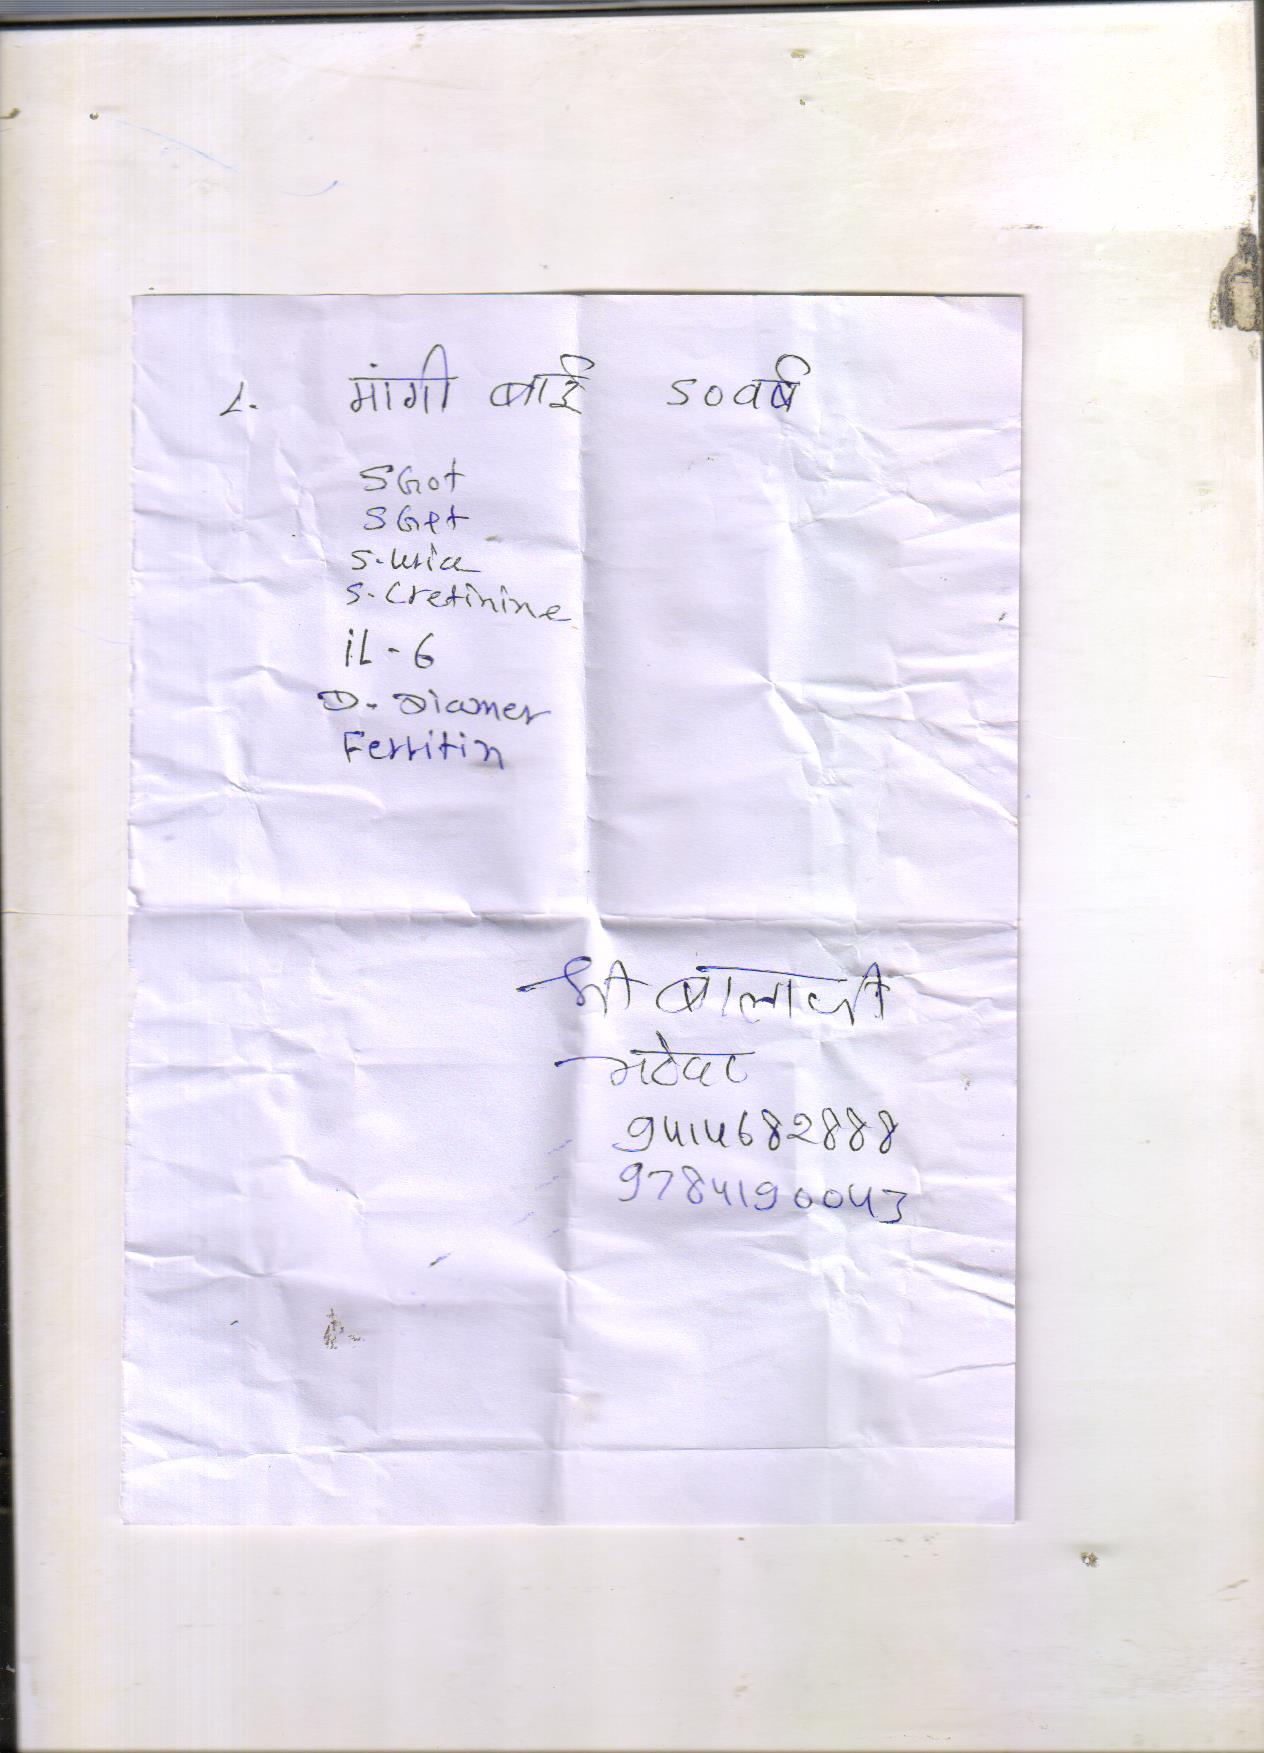 1. मांगी बाई 50 वर्ष
SGot
SGpt
S. Uria
S. Cretinine
iL-6
D. Diamer
Ferritin
श्री बालाजी
भटेवर
9414682888
9784190043